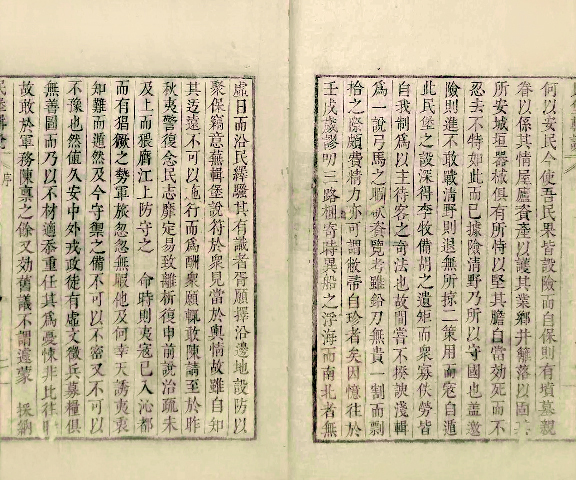 何以安民今使吾民果皆設險而自保則有墳墓親
眷以係其情屋廬資產以護其業鄉井籬落以固其
所安城垣器械俱有所恃以堅其膽自當効死而不
忍去不特如此而已據險清野乃所以守國也盖邀
險則進不敢戰清野則退無所掠二策用而寇自遁
此民堡之設深得李牧備胡之遺矩而衆寡佚勞皆
自我制爲以主待客之奇法也故間嘗不揆淺輯
爲一說弓馬之暇資覽考雖鈆刀無貴一割而剽
拾之際頗費精力亦可謂弊帚自珍者矣因憶往於
壬戌歲謬叨三路梱寄時異船之浮海而南北者無
虛日而沿民繹騷其有識者胥願擇沿邊地設防以
聚保竊意蕪輯堡說符於衆見當於輿情故雖自知
其迂遠不可以施行而爲酬衆願輒敢陳請至於昨
秋夷警復念民志靡定易致離析復申前說治疏未
及上而猥膺江上防守之 命時則夷寇已入沁都
而有猖獗之勢軍旅忽忽無暇他及何幸天誘夷衷
知難而遁然及今守禦之備不可以不密又不可以
不豫也然値久安中外戎政徒有虛文徵兵募糧俱
無善圖而乃以不材適忝重任其爲憂悚非比往時
故敢於軍務陳稟之餘又効舊議不謂邊蒙 採納
序